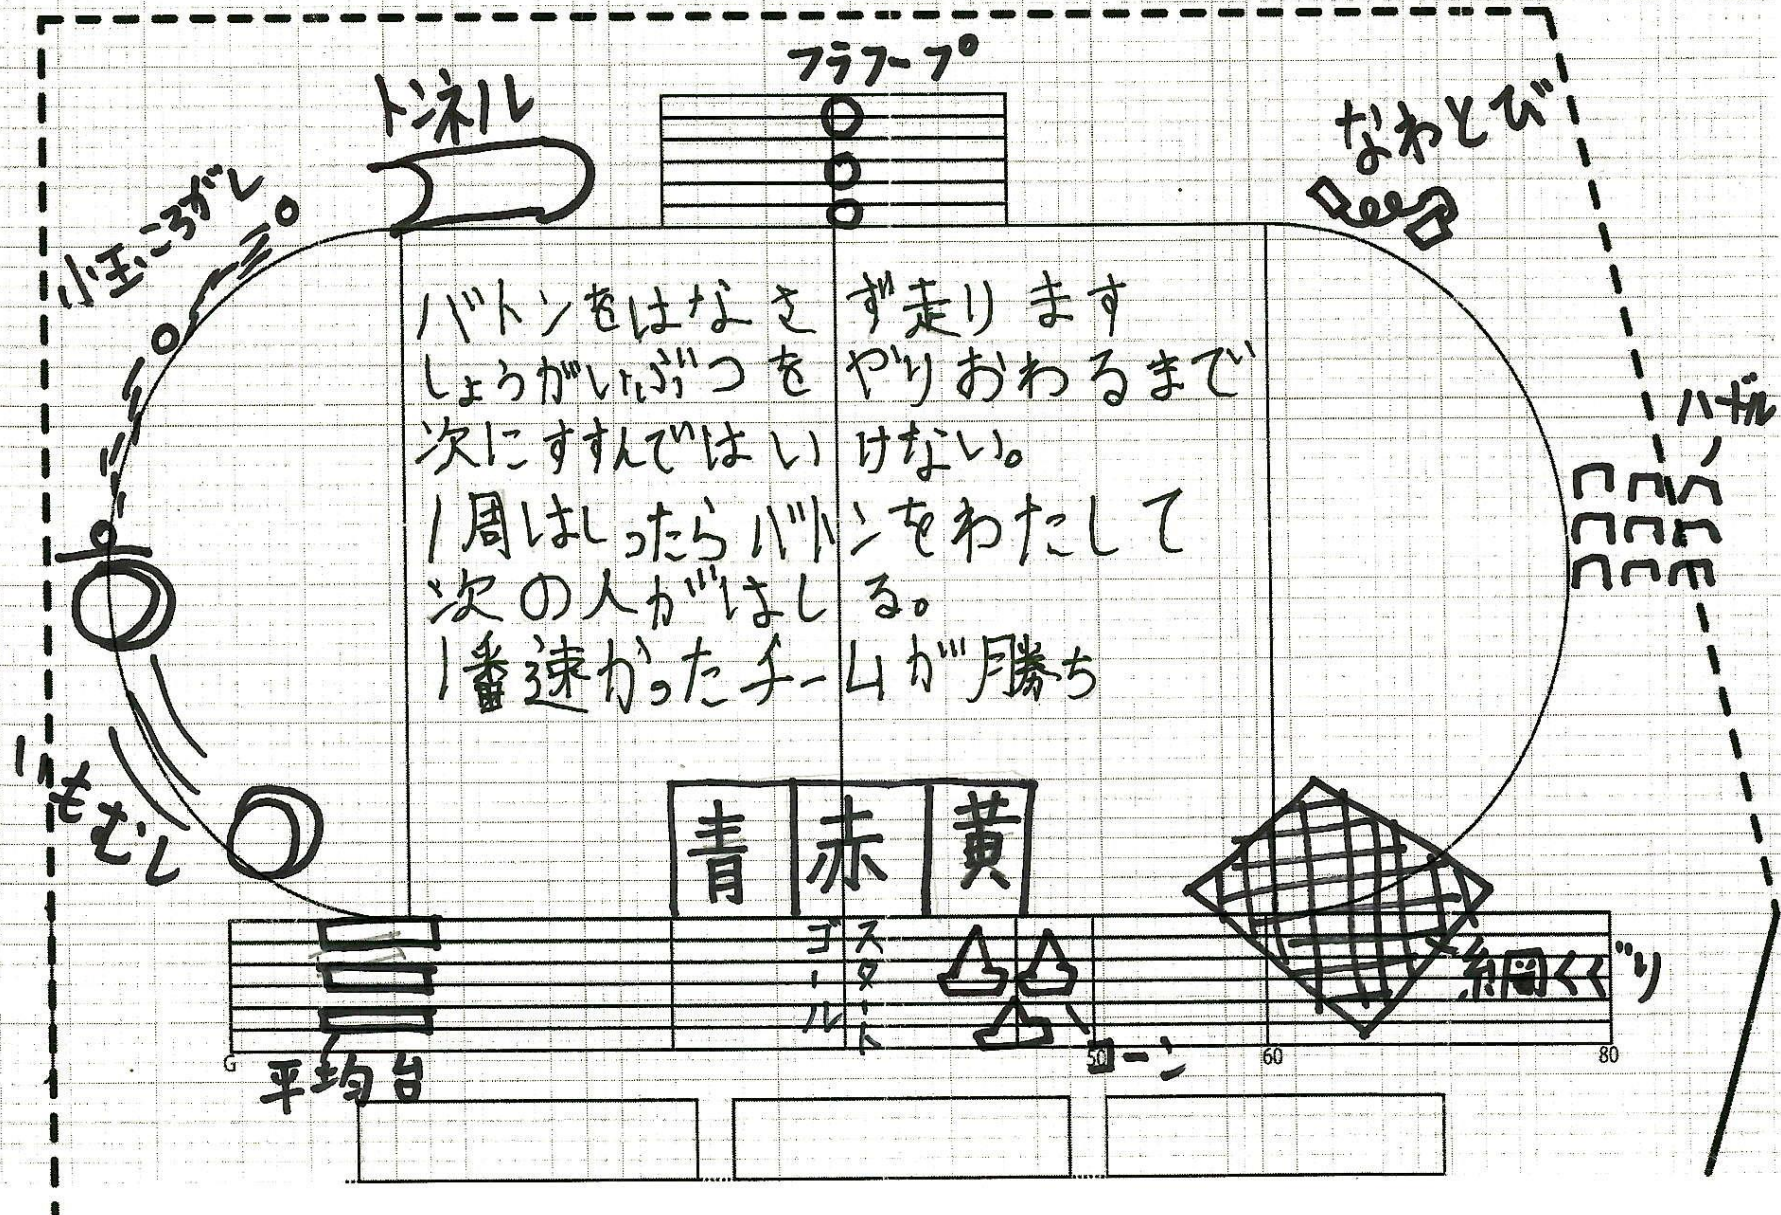 フラフープ
トンネル
なわとび
小玉ころがし
ハードル
バトンをはなさず走ります
しょうがいぶつをやりおわるまで
次にすすんではいけない。
1周はしったらバトンをわたして
次の人がはしる。
1番速かったチームが勝ち
いもむし
青 赤 黄
ゴール
スタート
網くぐり
コーン
平均台
G 50 60 80